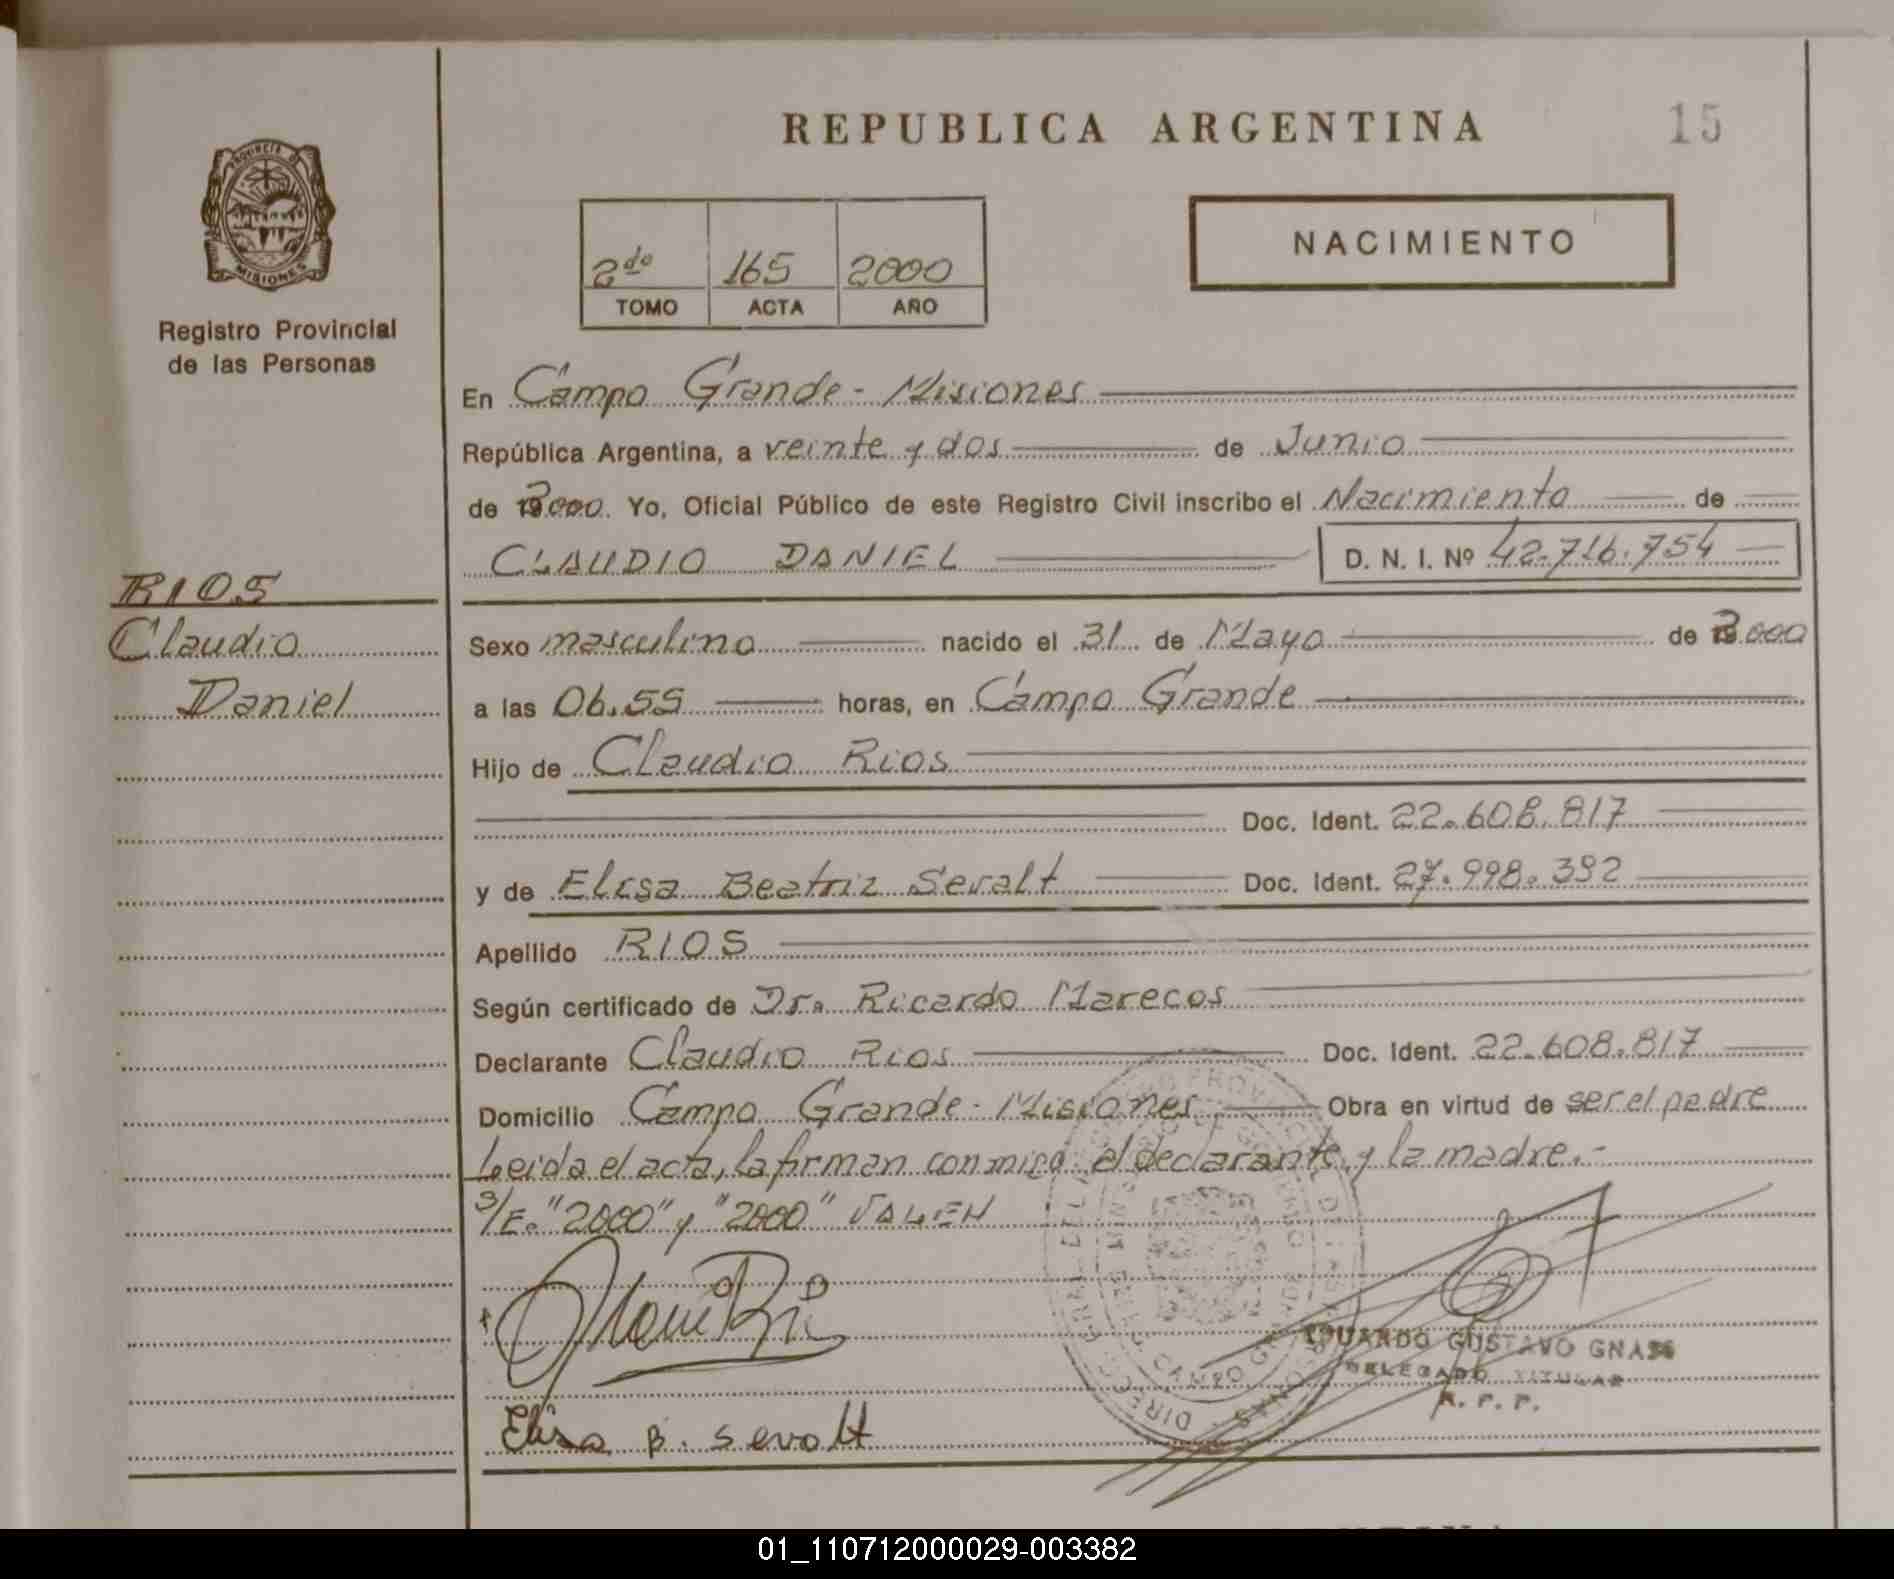 REPUBLICA ARGENTINA
15
PROVINCIA DE
MISIONES
Registro Provincial
de las Personas
2do 165 2000
TOMO ACTA AÑO
NACIMIENTO
En Campo Grande - Misiones
República Argentina, a veinte y dos de Junio
de 2000. Yo, Oficial Público de este Registro Civil inscribo el Nacimiento de
CLAUDIO DANIEL D. N. I. Nº 42.716.754
RIOS
Claudio
Daniel
Sexo masculino nacido el 31 de Mayo de 2000
a las 06.55 horas, en Campo Grande
Hijo de Claudio Rios
Doc. Ident. 22.608.817
y de Elisa Beatriz Sevalt Doc. Ident. 27.998.392
Apellido RIOS
Según certificado de Dr. Ricardo Marecos
Declarante Claudio Rios Doc. Ident. 22.608.817
Domicilio Campo Grande - Misiones Obra en virtud de ser el padre
Leida el acta, la firman conmigo el declarante y la madre.-
S/E. "2000" y "2000" VALEN
Elisa B. Sevalt
EDUARDO GUSTAVO GNASS
DELEGADO TITULAR
R. P. P.
01_110712000029-003382